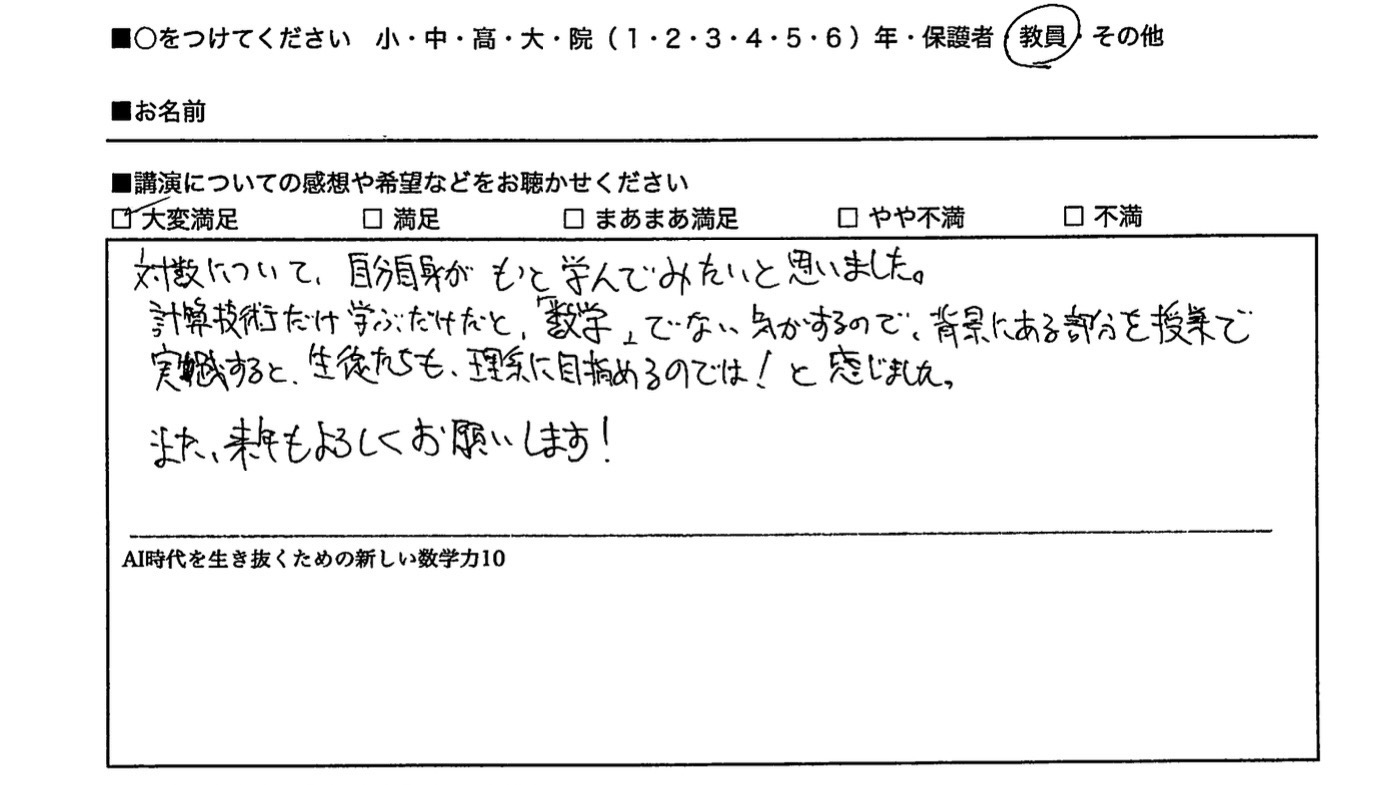 ■○をつけてください 小・中・高・大・院（1・2・3・4・5・6）年・保護者・教員・その他
■お名前
■講演についての感想や希望などをお聴かせください
□ 大変満足 □ 満足 □ まあまあ満足 □ やや不満 □ 不満
対数について、自分自身がもっと学んでみたいと思いました。
計算技術だけ学ぶだけだと、「数学」でない気がするので、背景にある部分を授業で
実践すると、生徒たちも、理系に目指めるのでは！と感じました。
また、来年もよろしくお願いします！
AI時代を生き抜くための新しい数学力10